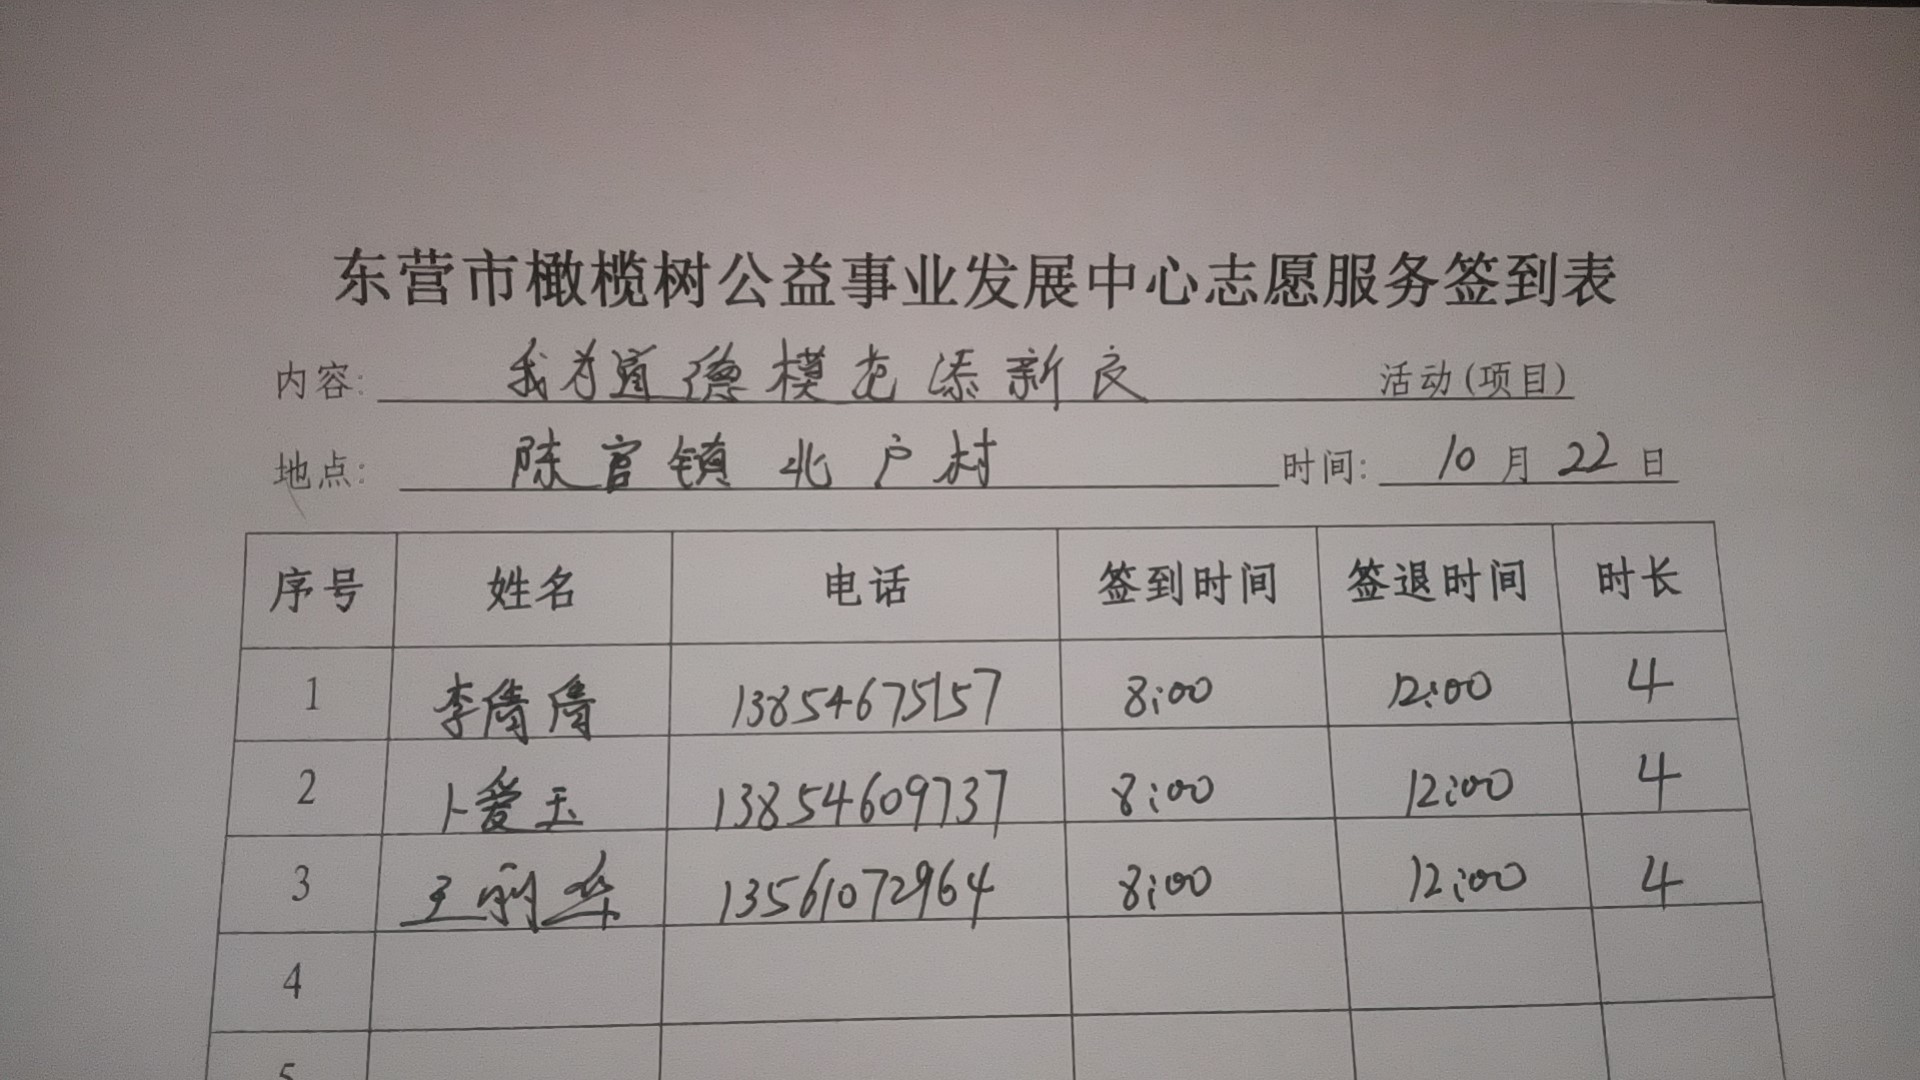 东营市橄榄树公益事业发展中心志愿服务签到表
内容: 我为道德模范添新衣 活动(项目)
地点: 陈官镇北户村 时间: 10月22日
序号 姓名 电话 签到时间 签退时间 时长
1 李倩倩 13854675157 8:00 12:00 4
2 卜爱玉 13854609737 8:00 12:00 4
3 王丽华 13561072964 8:00 12:00 4
4
5